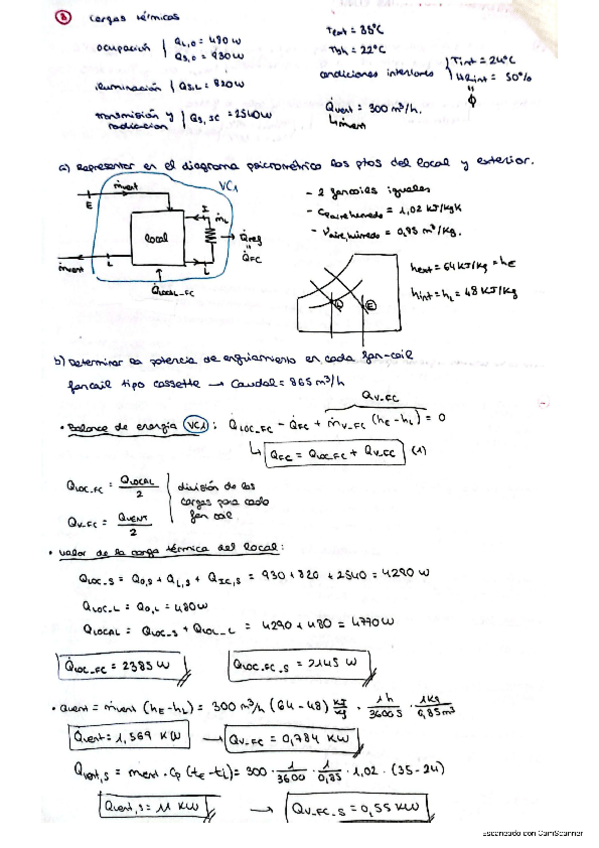 8 Cargas térmicas
ocupación { QL,O = 480 W
QS,O = 930 W
iluminación { QS,L = 820 W
transmisión y radiación { QS,SC = 2540 W
Text = 35°C
Tbh = 22°C
condiciones interiores { Tint = 24°C
HRint = 50%
"
ϕ
V̇vent = 300 m³/h.
↳ ṁvent
a) Representar en el diagrama psicrométrico los ptos del local y exterior.
ṁvent
VC1
E
I
ṁL
local
Q̇ref
"
Q̇FC
ṁvent
L
L
Q̇LOCAL_FC
- 2 fancoils iguales
- Cpaire húmedo = 1,02 KJ/kgK
- Vaire,húmedo = 0,85 m³/Kg.
L
E
hext = 64 KJ/Kg = hE
hint = hL = 48 KJ/Kg
b) Determinar la potencia de enfriamiento en cada fan-coil
fancoil tipo cassette → Caudal = 865 m³/h
QV_FC
• Balance de energía (VC1): Q̇LOC_FC - Q̇FC + ṁV_FC (hE - hL) = 0
↳ QFC = QLOC_FC + QV_FC (1)
QLOC_FC = QLOCAL / 2
QV_FC = QVENT / 2
división de las cargas para cada fan coil.
• Valor de la carga térmica del local:
QLOC_S = QO,S + QL,S + QSC,S = 930 + 820 + 2540 = 4290 W
QLOC_L = QO,L = 480 W
QLOCAL = QLOC_S + QLOC_L = 4290 + 480 = 4770 W
Q̇LOC_FC = 2385 W
Q̇LOC_FC_S = 2145 W
• Qvent = ṁvent (hE - hL) = 300 m³/h (64 - 48) KJ/Kg · 1h/3600S · 1Kg/0,85m³
Qvent = 1,569 KW → QV_FC = 0,784 KW
Qvent,S = ṁent · Cp (tE - tL) = 300 · 1/3600 · 1/0,85 · 1,02 · (35 - 24)
Qvent,S = 1,1 KW → QV_FC_S = 0,55 KW
Escaneado con CamScanner